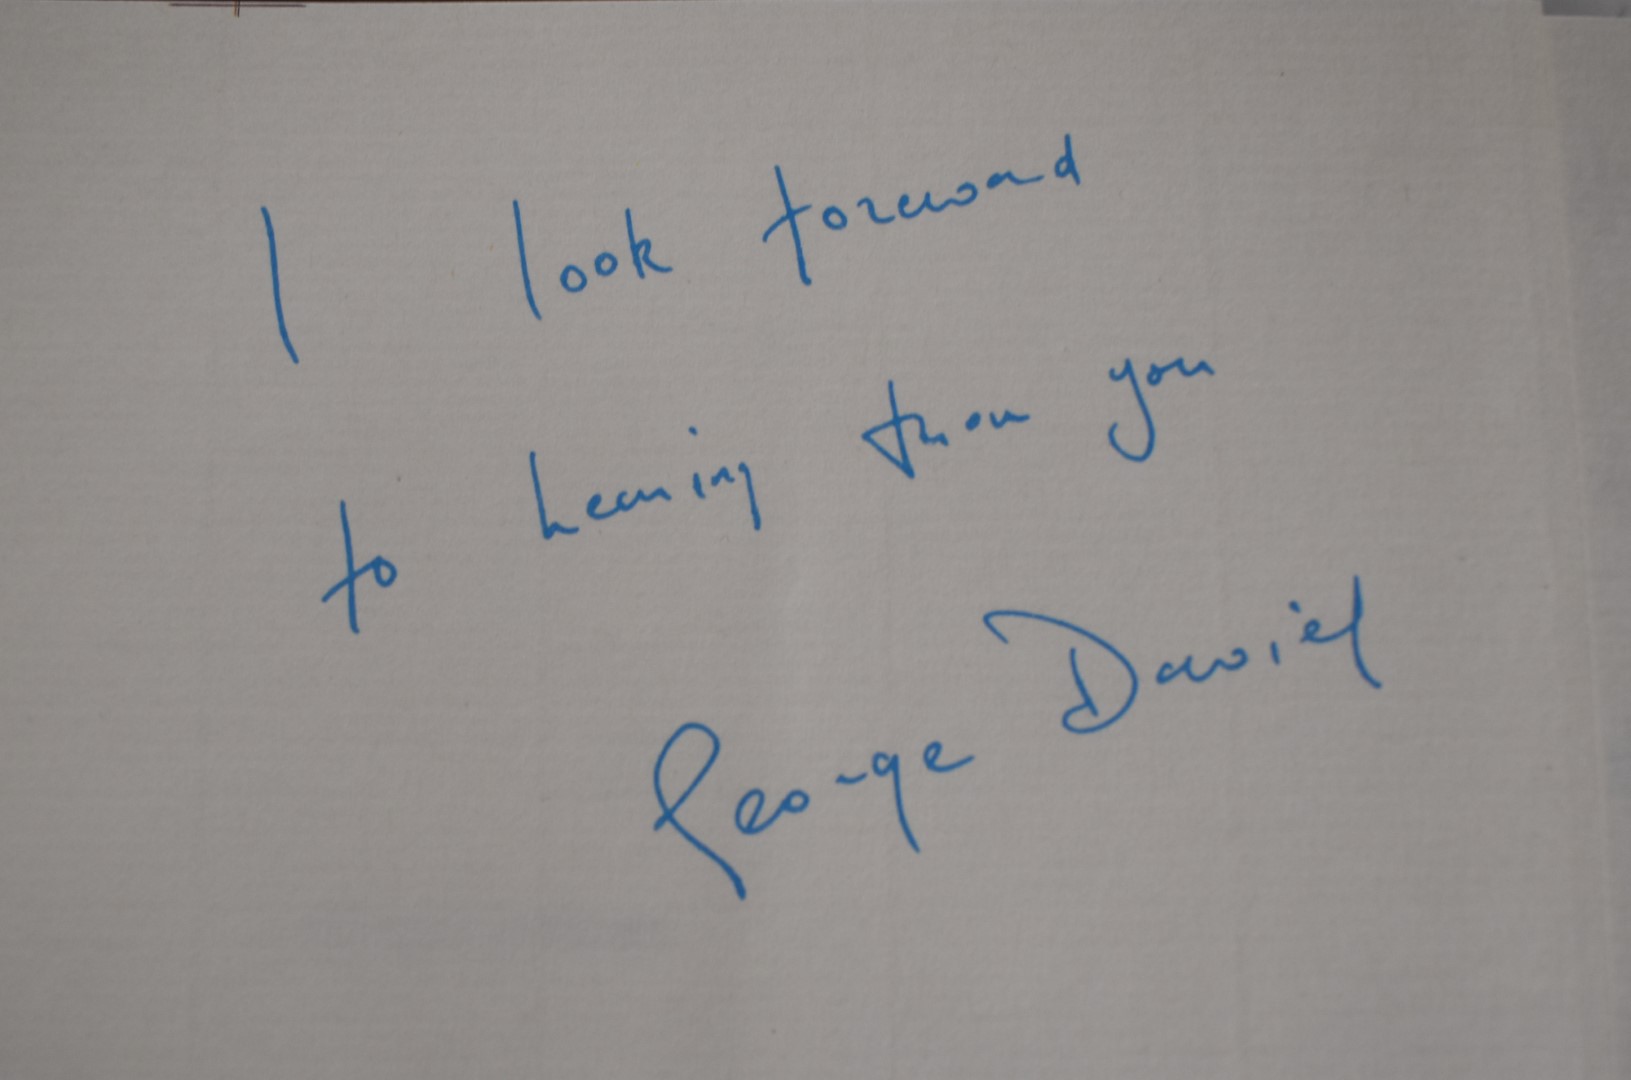 I look forward
to hearing from you
George Daniel